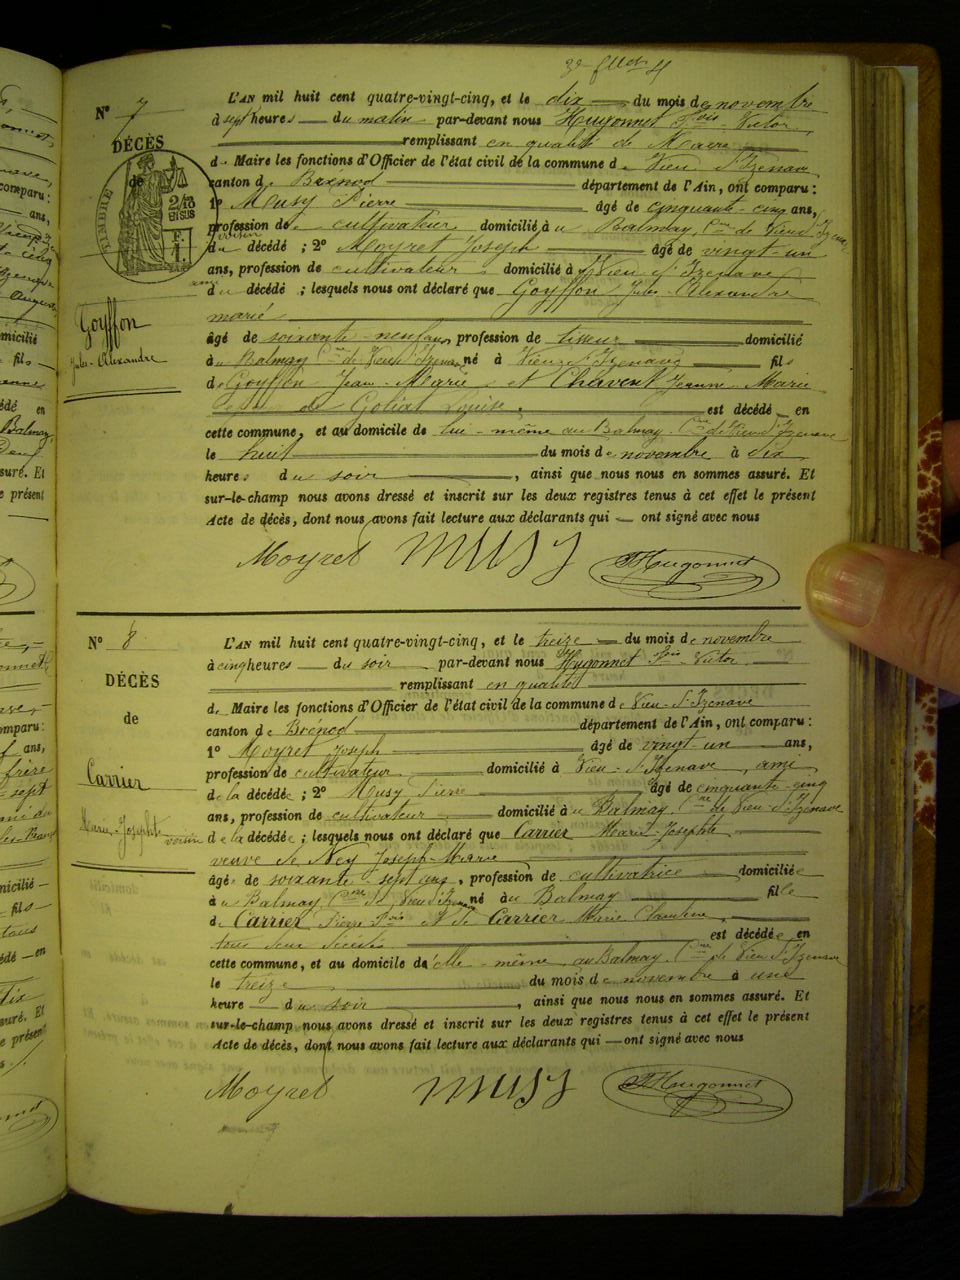 N° 7
DÉCÈS
de
TIMBRE
2/10
EN SUS
F.
1.
Goyffon
Jules-Alexandre
L'AN mil huit cent quatre-vingt-cinq, et le dix du mois de novembre
à sept heures du matin par-devant nous Hugonnet Fois Victor
remplissant en qualité de Maire
de Maire les fonctions d'Officier de l'état civil de la commune de Vieu d'Izenave
canton de Brénod département de l'Ain, ont comparu :
1° Musy Pierre âgé de cinquante-cinq ans,
profession de cultivateur domicilié à Balmay, Cne de Vieu d'Izenave
voisin
du décédé ; 2° Moyret Joseph âgé de vingt-un
ans, profession de cultivateur domicilié à Vieu d'Izenave
ami
du décédé ; lesquels nous ont déclaré que Goyffon Jules-Alexandre
marié
âgé de soixante-neuf ans, profession de tisseur domicilié
au Balmay Cne de Vieu d'Izenave né à Vieu-d'Izenave fils
de Goyffon Jean-Marie et Chavent Jeanne-Marie
de Goliat Louise, est décédé en
cette commune, et au domicile de lui-même au Balmay. Cne de Vieu d'Izenave
le huit du mois de novembre à dix
heures du soir, ainsi que nous nous en sommes assuré. Et
sur-le-champ nous avons dressé et inscrit sur les deux registres tenus à cet effet le présent
Acte de décès, dont nous avons fait lecture aux déclarants qui ont signé avec nous
Moyret musy FHugonnet
N° 8
DÉCÈS
de
Carrier
Marie-Josephte
L'AN mil huit cent quatre-vingt-cinq, et le treize du mois de novembre
à cinq heures du soir par-devant nous Hugonnet Fois Victor
remplissant en qualité
de Maire les fonctions d'Officier de l'état civil de la commune de Vieu-d'Izenave
canton de Brénod département de l'Ain, ont comparu :
1° Moyret Joseph âgé de vingt-un ans,
profession de cultivateur domicilié à Vieu-d'Izenave, ami
de la décédée ; 2° Musy Pierre âgé de cinquante-cinq
ans, profession de cultivateur domicilié au Balmay Cne de Vieu-d'Izenave
voisin de la décédée ; lesquels nous ont déclaré que Carrier Marie-Josephte
veuve de Ney Joseph-Marie
âgée de soixante-sept ans, profession de cultivatrice domiciliée
au Balmay Cne de Vieu d'Izenave née au Balmay fille
de Carrier Pierre Fois et de Carrier Marie Claudine,
tous deux décédés est décédée en
cette commune, et au domicile d'elle-même au Balmay. Cne de Vieu d'Izenave
le treize du mois de novembre à une
heure du soir, ainsi que nous nous en sommes assuré. Et
sur-le-champ nous avons dressé et inscrit sur les deux registres tenus à cet effet le présent
Acte de décès, dont nous avons fait lecture aux déclarants qui ont signé avec nous
Moyret musy FHugonnet